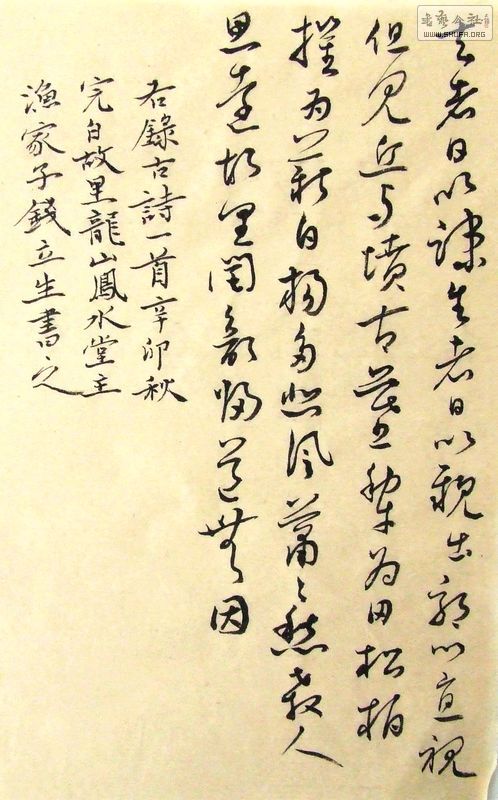 去者日以疎生者日以親出郭门直視
但見丘与墳古墓犁为田松柏
摧为薪白楊多悲風蕭〻愁殺人
思還故里閭欲歸道無因
右錄古詩一首辛卯秋
完白故里龍山鳳水堂主
漁家子錢立生書之
书艺公社
WWW.SHUFA.ORG